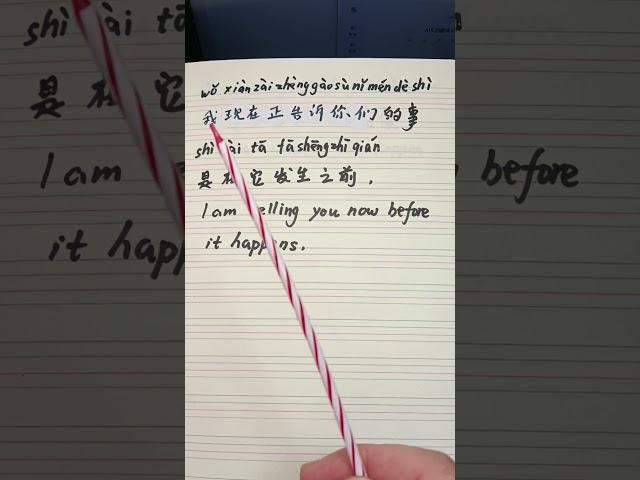 wǒ xiàn zài zhèng gào sù nǐ mén dè shì
我现在正告诉你们的事
shì ài tā fā shēng zhī qián
是在它发生之前.
I am telling you now before
it happens.